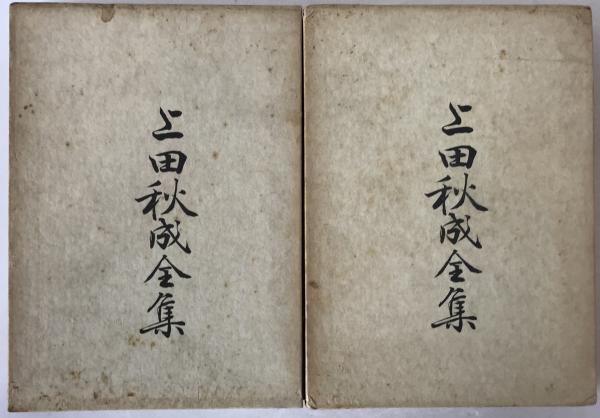 上田秋成全集
上田秋成全集